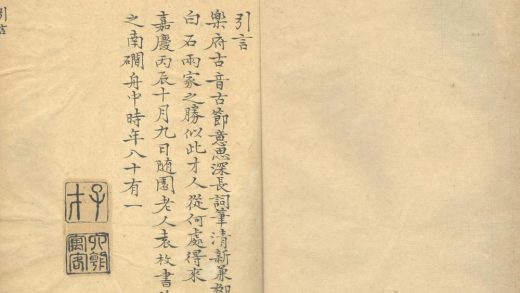 引言
樂府古音古節意思深長詞筆清新兼
白石兩家之勝似此才人從何處得來
嘉慶丙辰十月九日隨園老人袁枚書
之南磵舟中時年八十有一
子才
引言